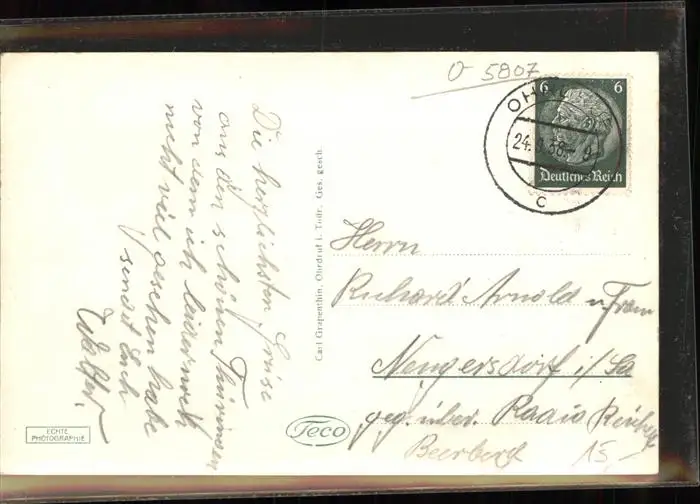 O 5807
6 6
Deutsches Reich
24.
c
Die herzlichsten Grüße
aus den schönen Thüringen
von dem ich leider noch
nicht viel gesehen habe
sendet Euch
Walter.
Carl Grapenthin, Ohrdruf i. Thür. Ges. gesch.
Herrn
Richard Arnold u. Frau
Neugersdorf i/Sa
geg. über. Radio
Beerberg 15,-
Teco
ECHTE
PHOTOGRAPHIE